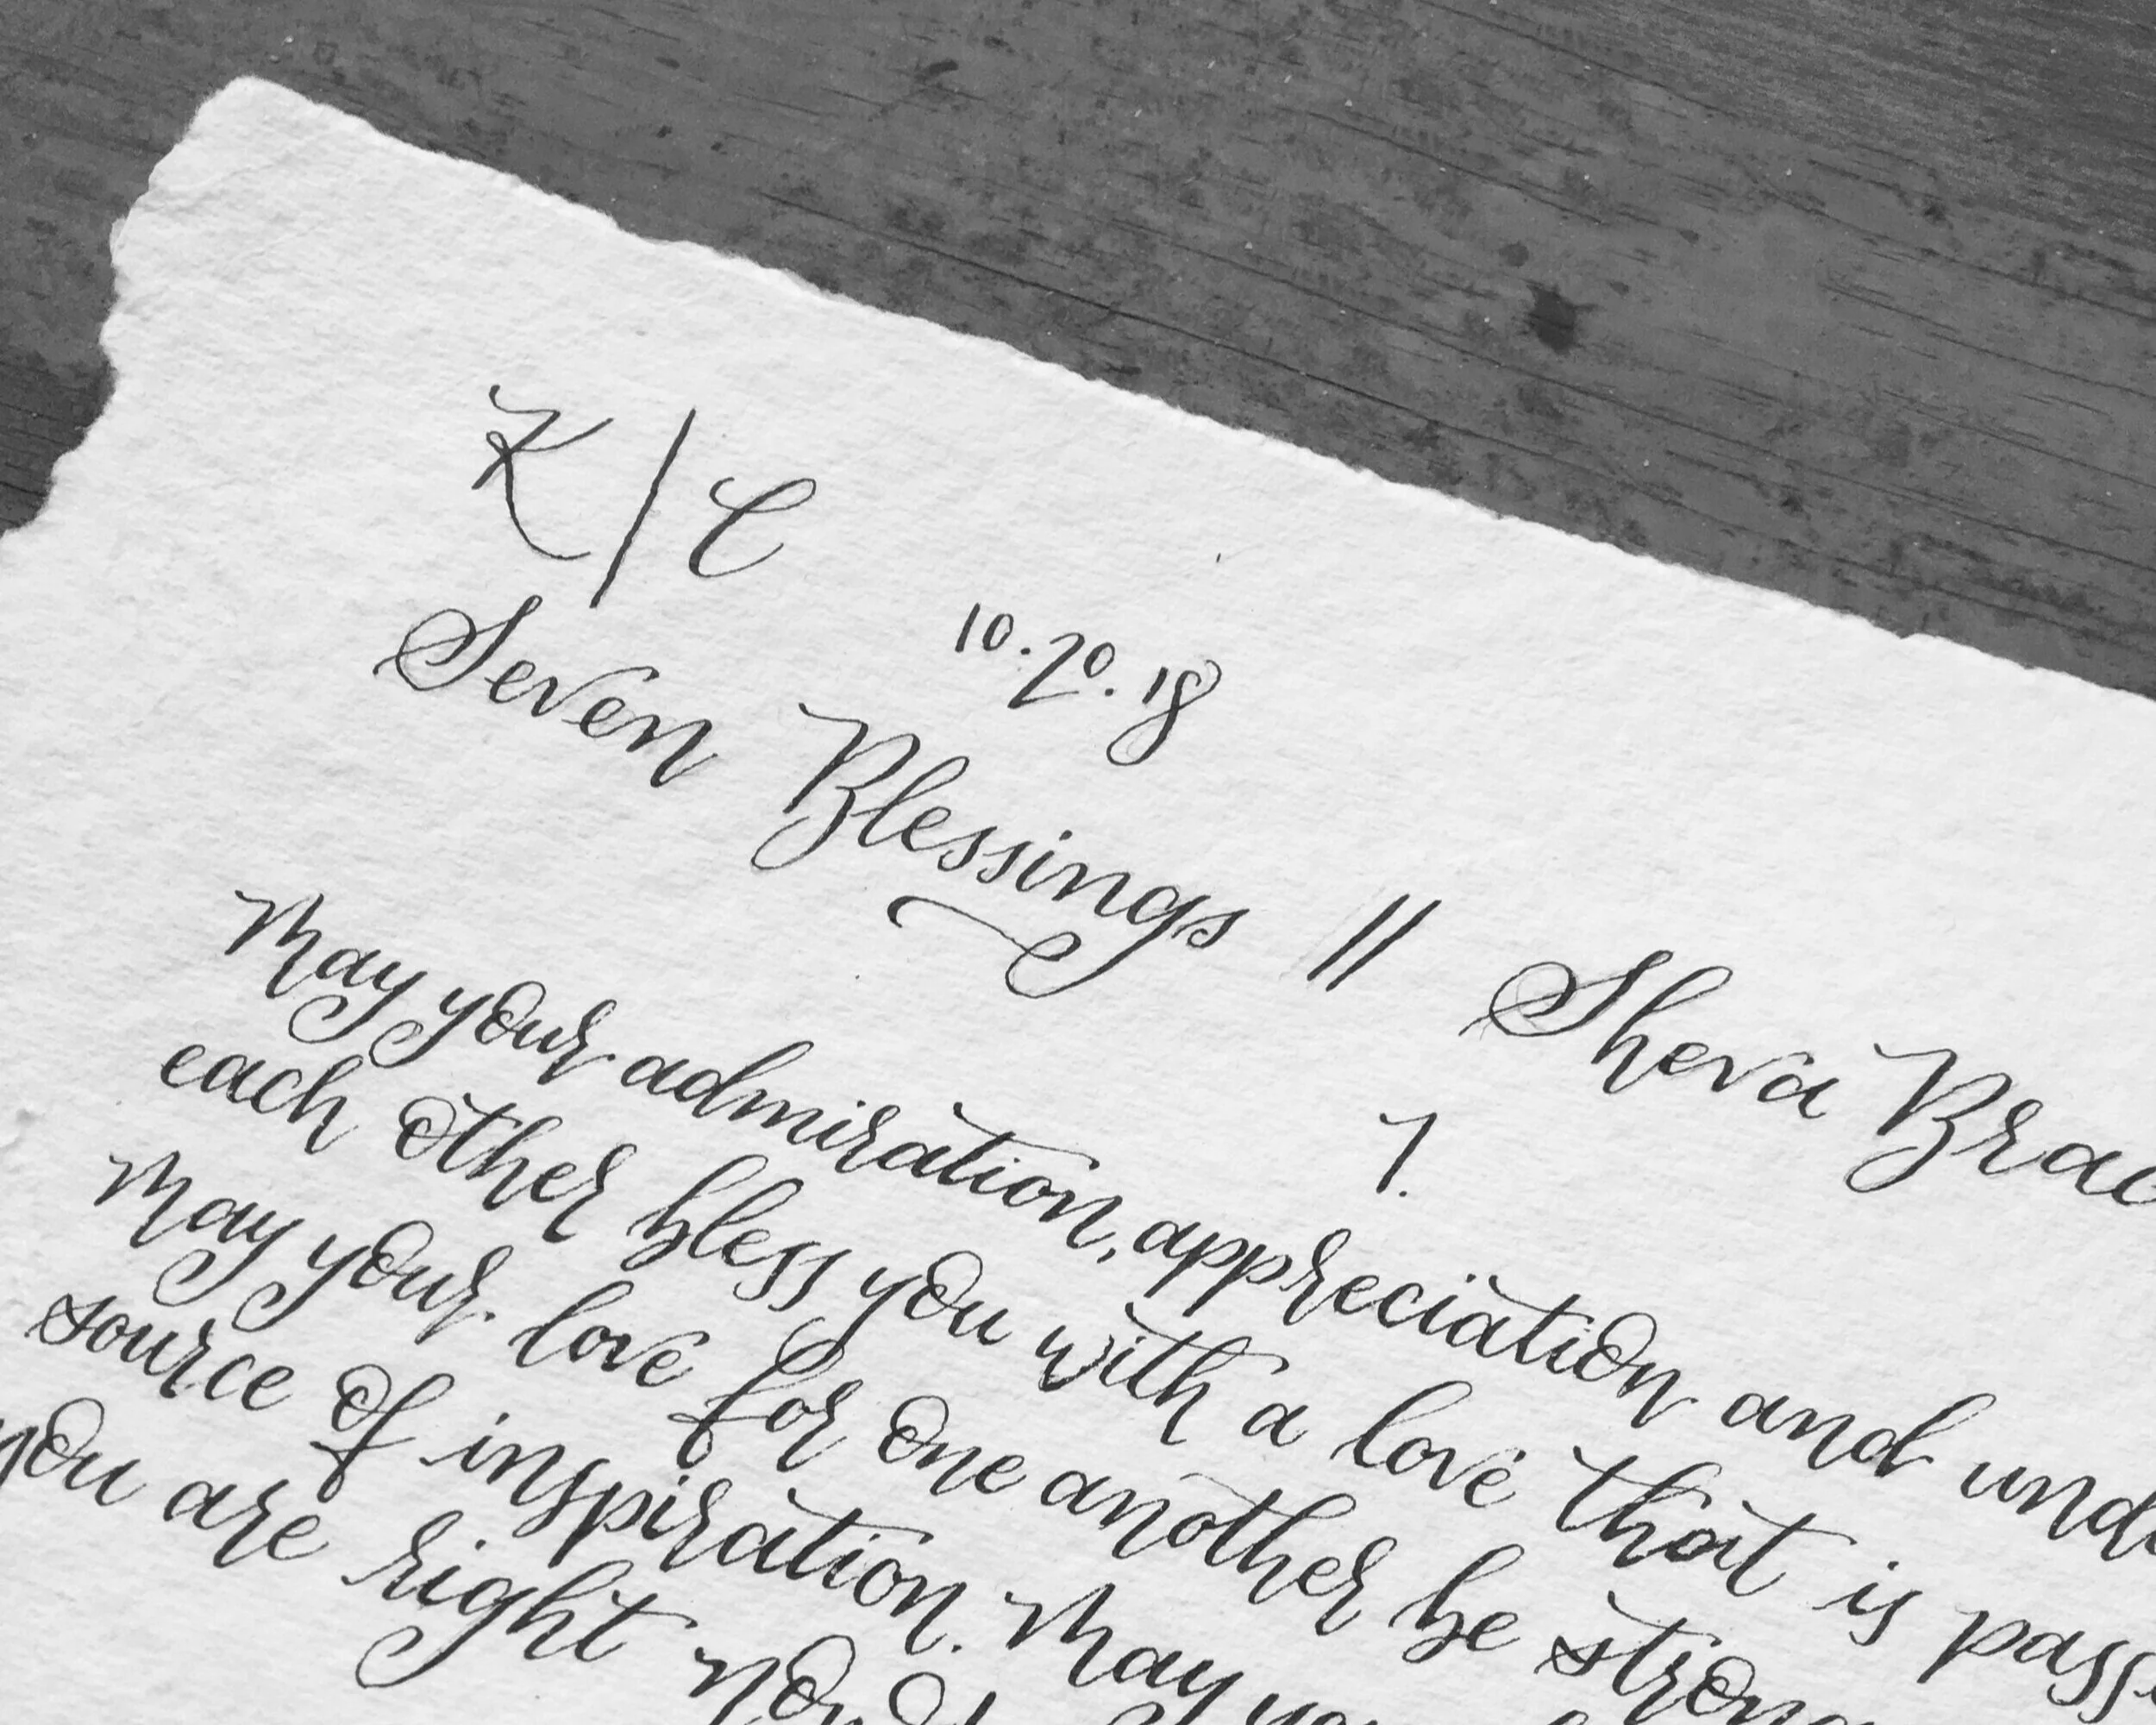 K | C
10.20.18
Seven Blessings || Sheva Brac
1.
May your admiration, appreciation and und
each other bless you with a love that is pass
May your love for one another be strong
source of inspiration. May you
you are right now